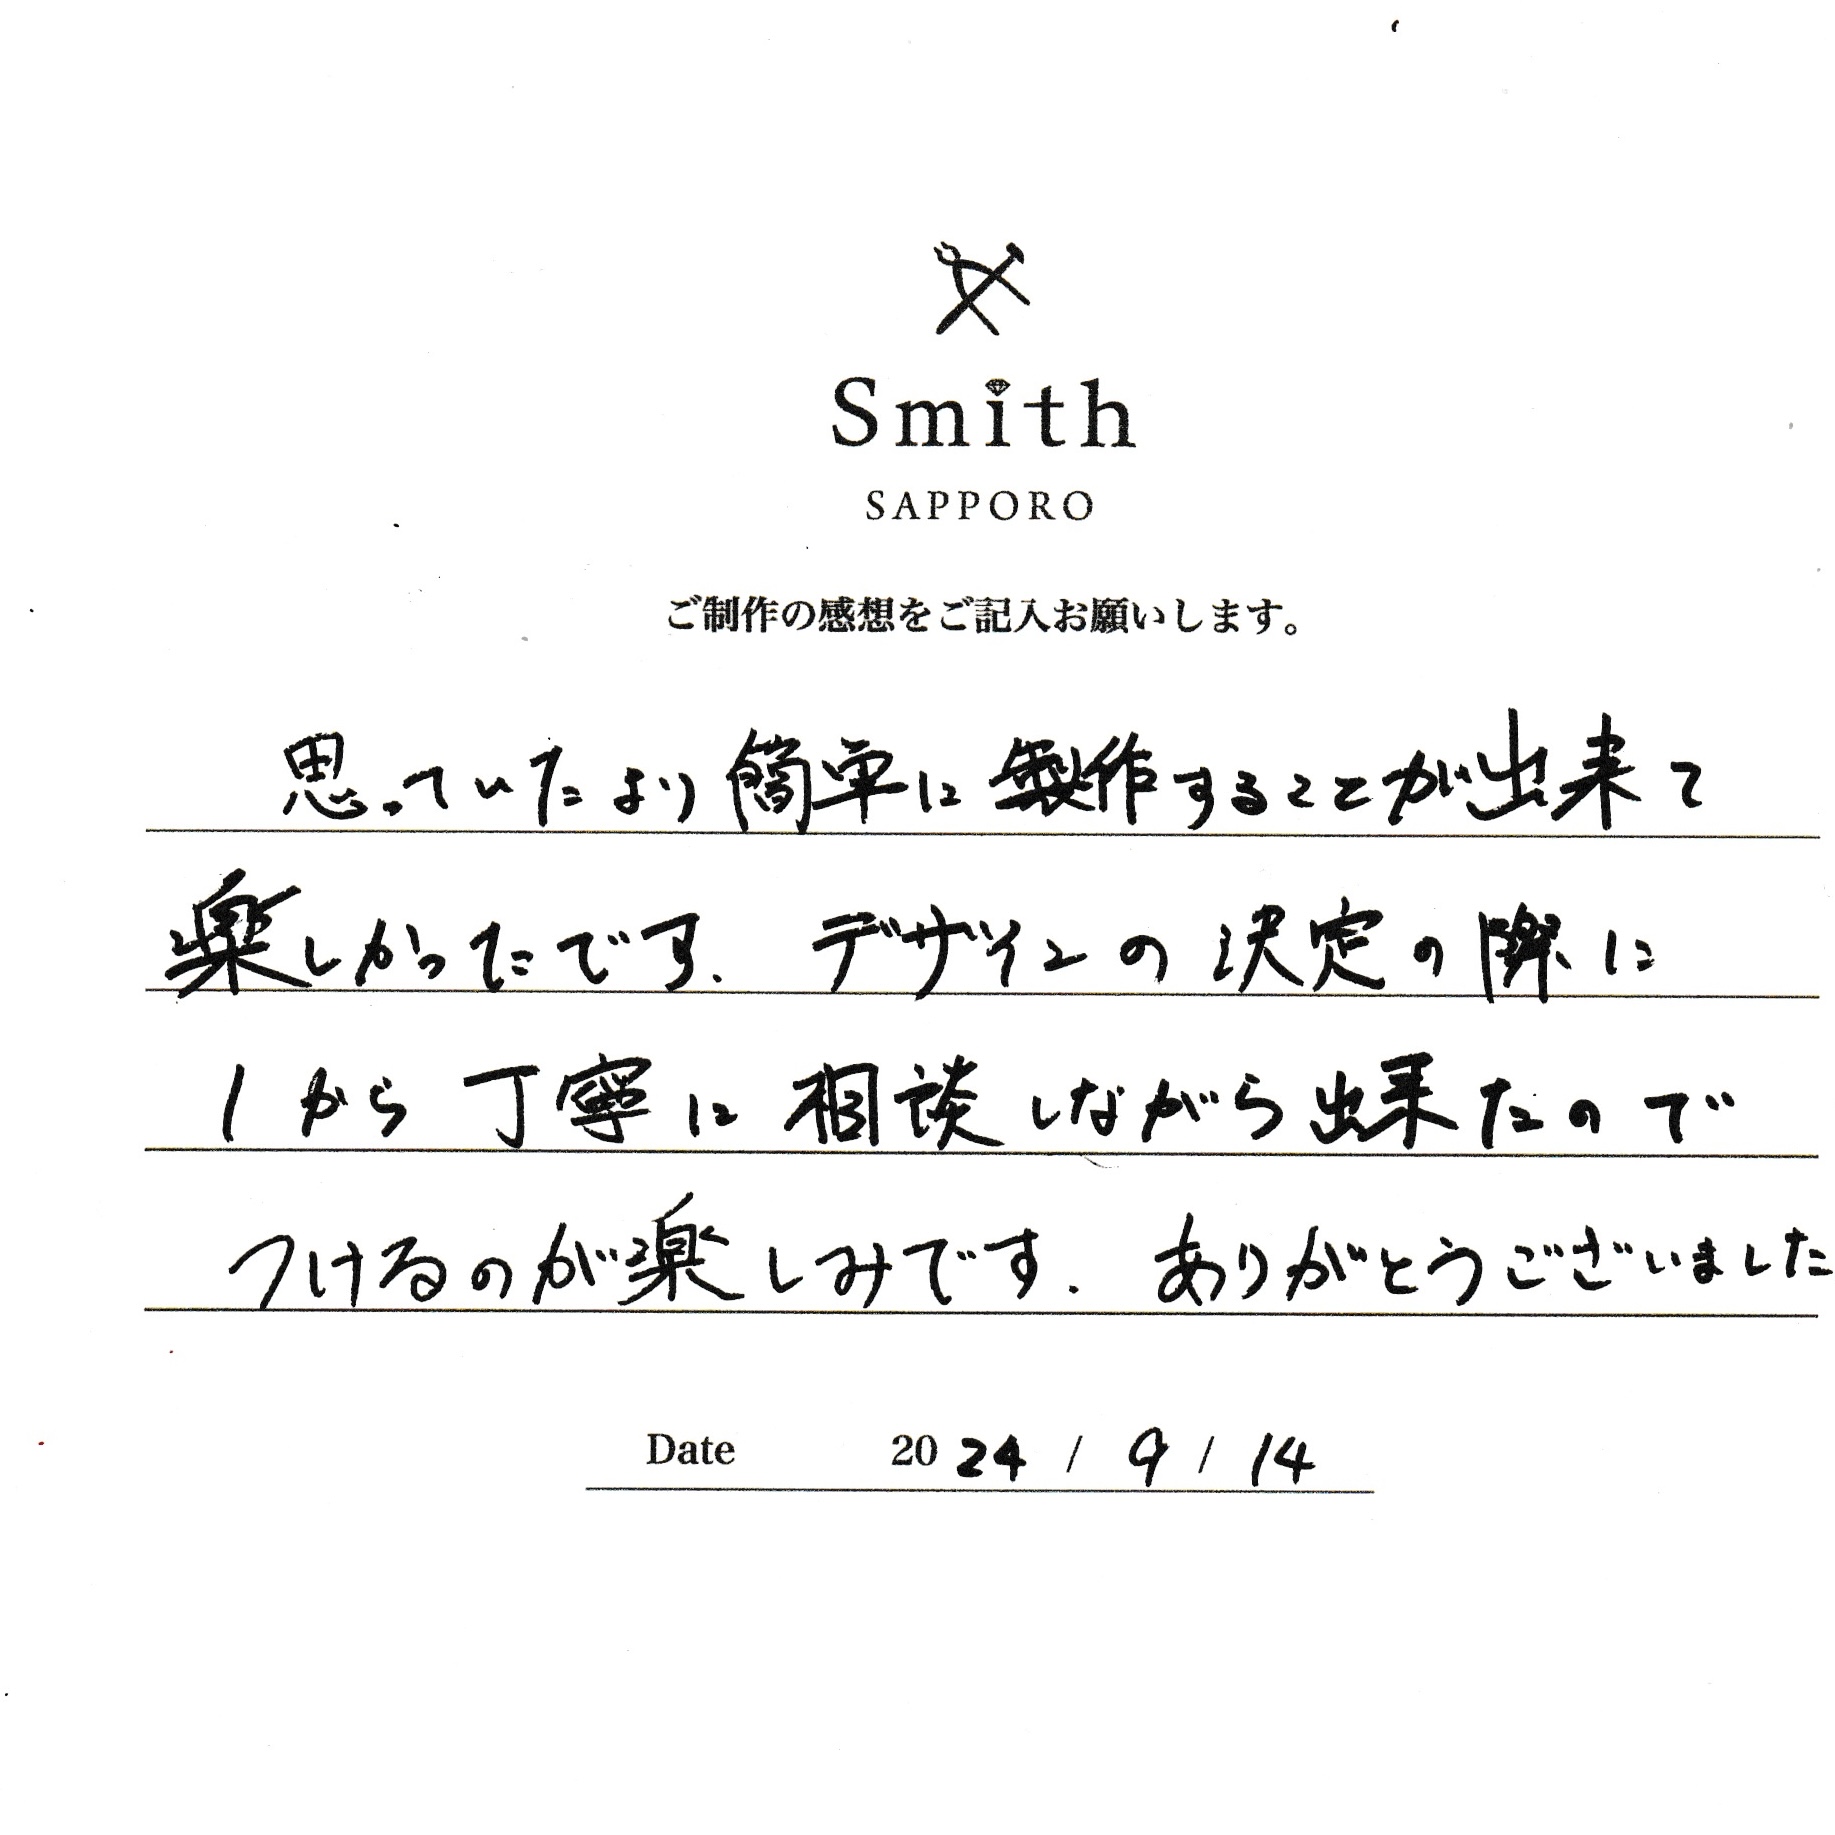 Smith
SAPPORO
ご制作の感想をご記入お願いします。
思っていたより簡単に製作することが出来て
楽しかったです. デザインの決定の際に
1から丁寧に相談しながら出来たので
つけるのが楽しみです. ありがとうございました
Date 2024 / 9 / 14